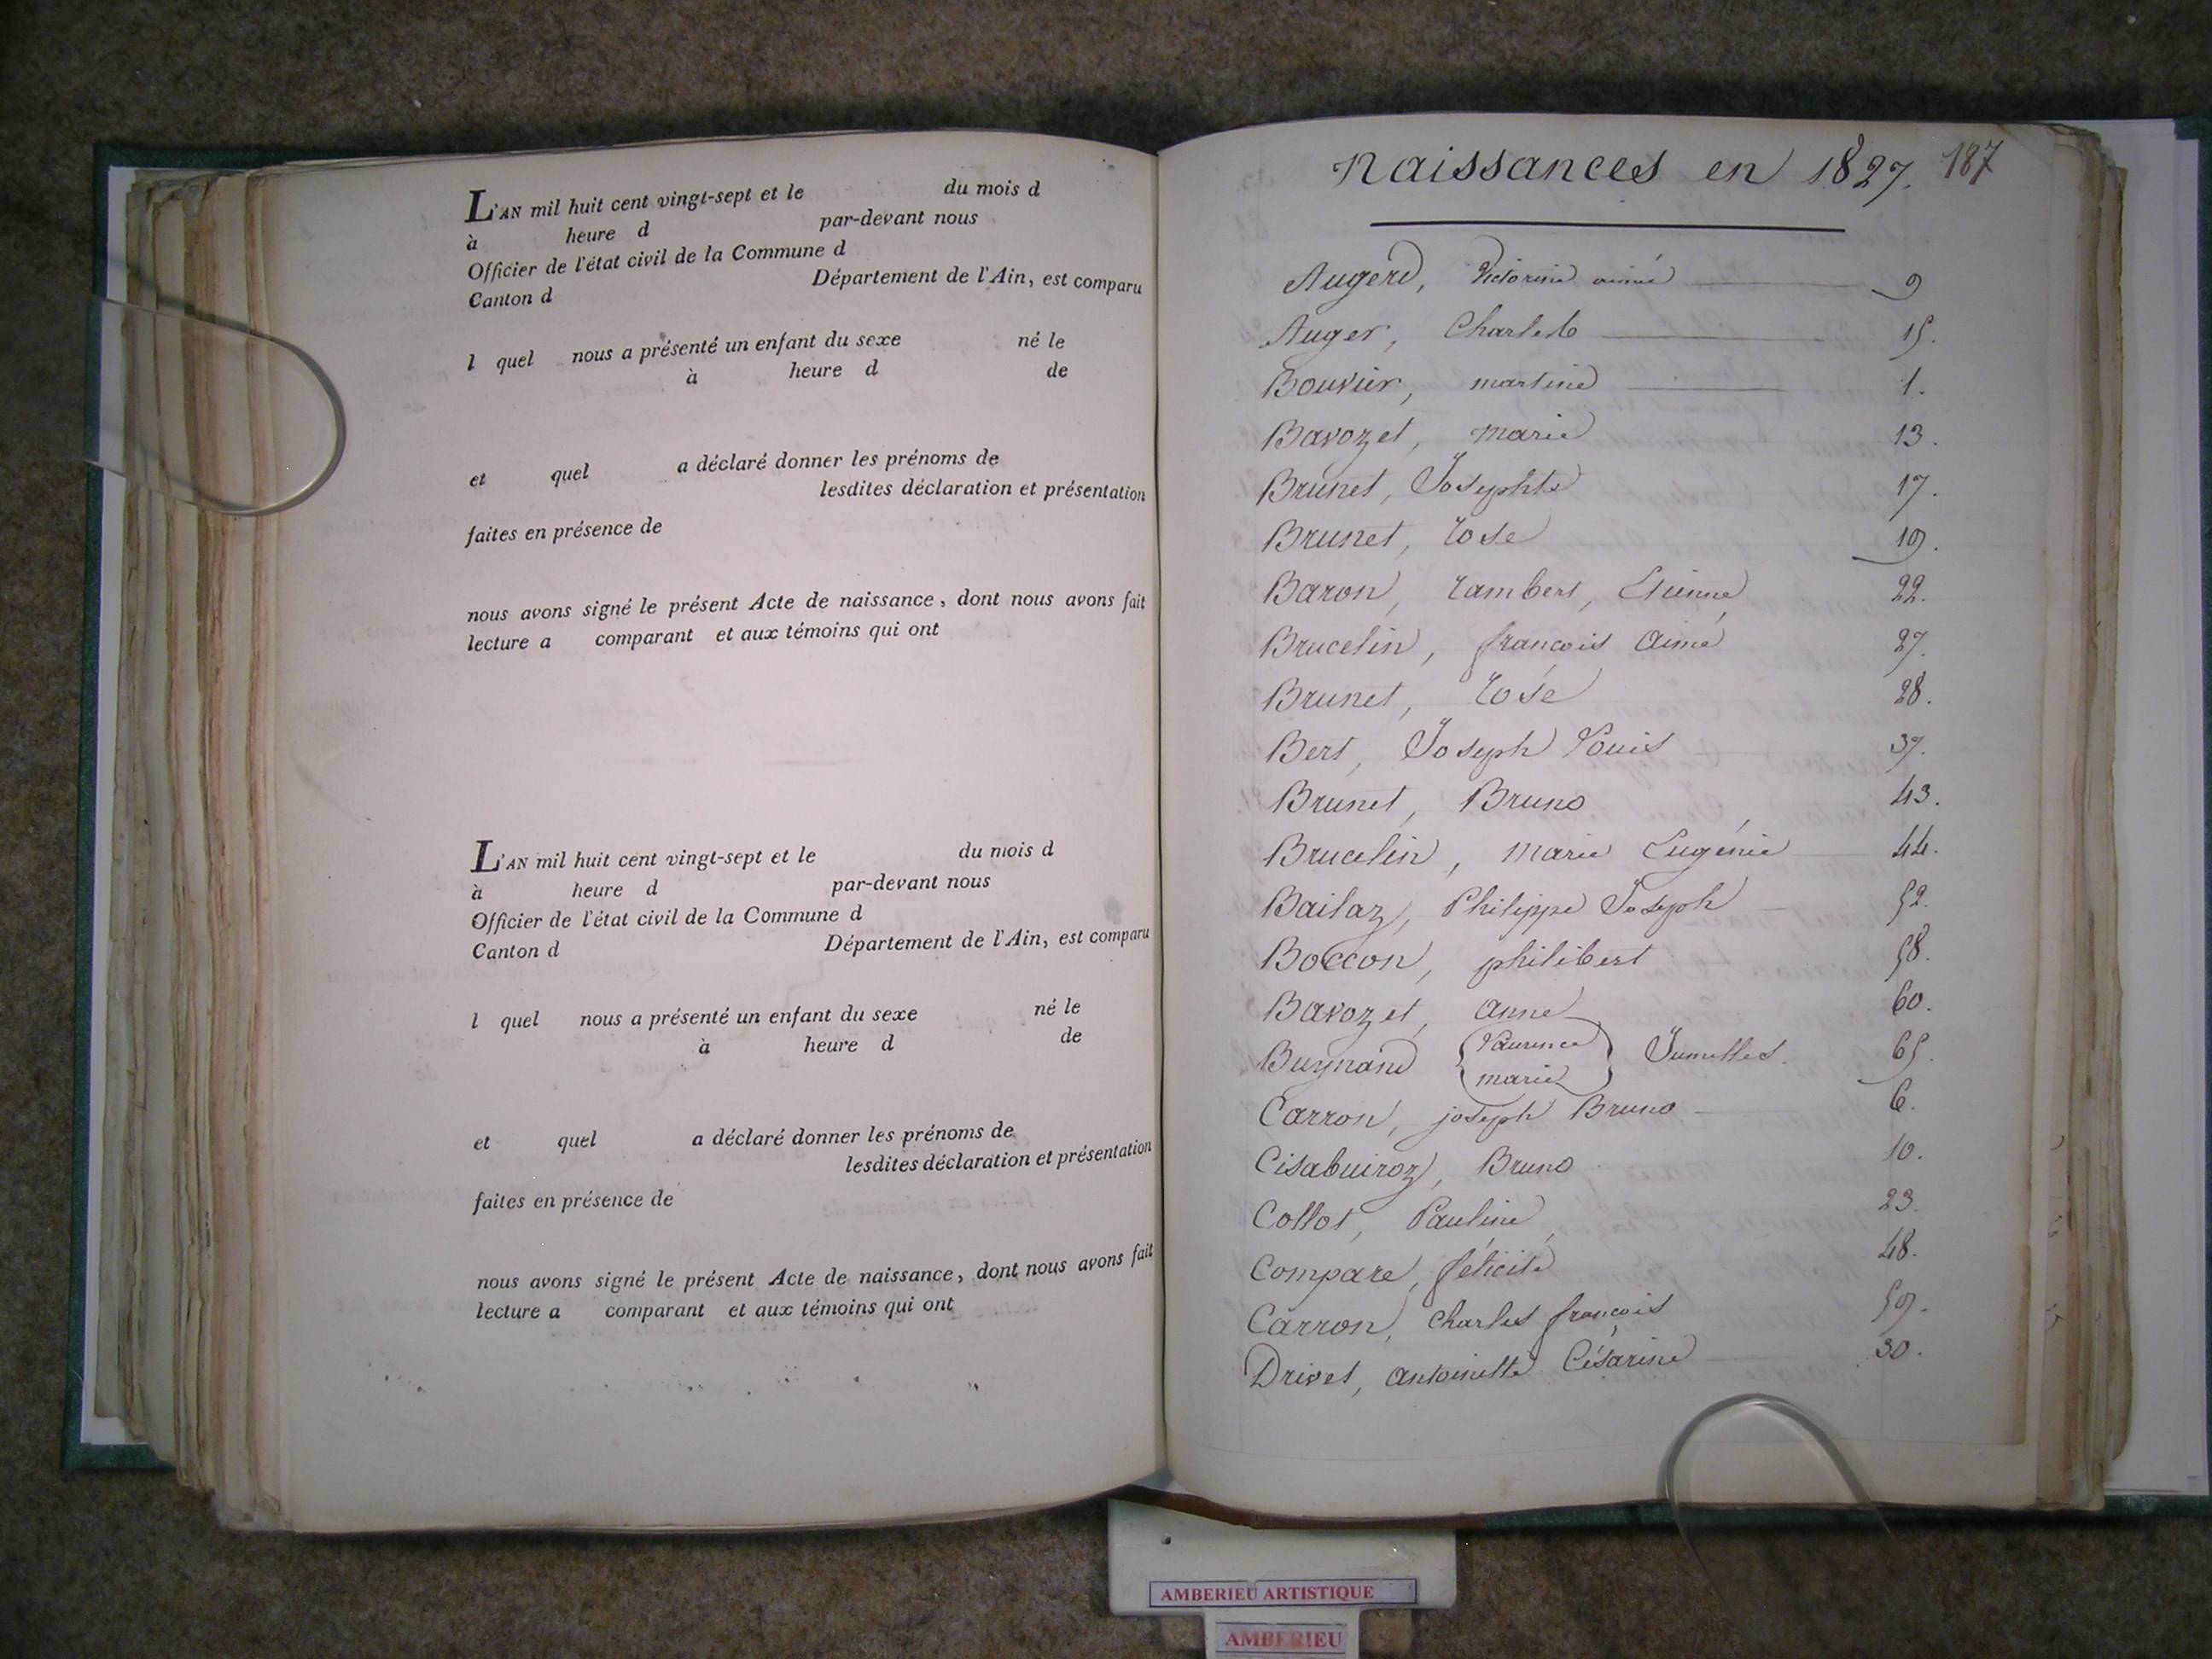 L'AN mil huit cent vingt-sept et le du mois d
à heure d par-devant nous
Officier de l'état civil de la Commune d
Canton d Département de l'Ain, est comparu
l quel nous a présenté un enfant du sexe né le
à heure d de
et quel a déclaré donner les prénoms de
lesdites déclaration et présentation
faites en présence de
nous avons signé le présent Acte de naissance, dont nous avons fait
lecture a comparant et aux témoins qui ont
L'AN mil huit cent vingt-sept et le du mois d
à heure d par-devant nous
Officier de l'état civil de la Commune d
Canton d Département de l'Ain, est comparu
l quel nous a présenté un enfant du sexe né le
à heure d de
et quel a déclaré donner les prénoms de
lesdites déclaration et présentation
faites en présence de
nous avons signé le présent Acte de naissance, dont nous avons fait
lecture a comparant et aux témoins qui ont
naissances en 1827. 187
Augerd, Victorine aimé 9
Auger, Charles 15.
Bouvier, martine 1.
Bavozet, marie 13.
Brunet, Josephte 17.
Brunet, rose 19.
Baron, rambert, Etienne 22.
Brucelin, françois Aimé 27.
Brunet, rose 28.
Bert, Joseph Louis 37.
Brunet, Bruno 43.
Brucelin, marie Eugénie 44.
Bailaz, Philippe Joseph 52.
Boccon, philibert 58.
Bavozet, anne 60.
Buynand { Laurence
marie } Jumelles. 65.
Carron, joseph Bruno 6.
Cisabuiroz, Bruno 10.
Collot, Pauline 23.
Compare, félicité 48.
Carron, Charles françois 59.
Drivet, antoinette Césarine 30.
AMBERIEU ARTISTIQUE
AMBERIEU